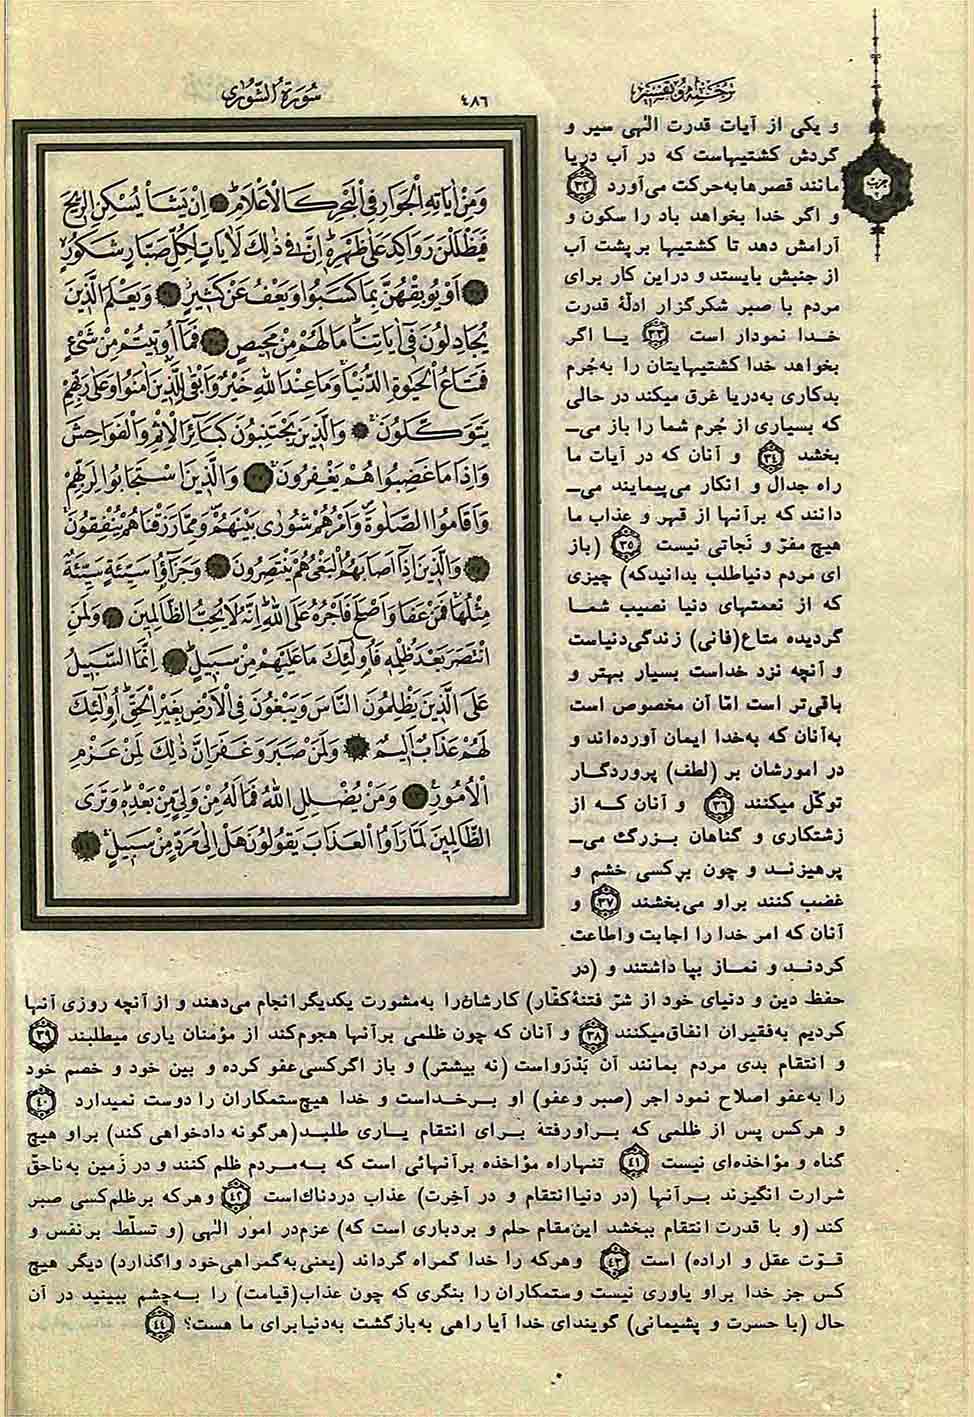 ترجمه و تفسیر
۴۸۶
سُورَةُ الشُّورٰى
وَمِنْ اٰيَاتِهِ الْجَوَارِ فِي الْبَحْرِ كَالْاَعْلَامِ ۞ اِنْ يَشَأْ يُسْكِنِ الرِّيحَ
فَيَظْلَلْنَ رَوَاكِدَ عَلٰى ظَهْرِهِ اِنَّ فِي ذٰلِكَ لَاٰيَاتٍ لِكُلِّ صَبَّارٍ شَكُورٍ
۞ اَوْ يُوبِقْهُنَّ بِمَا كَسَبُوا وَيَعْفُ عَنْ كَثِيرٍ ۞ وَيَعْلَمَ الَّذِينَ
يُجَادِلُونَ فِي اٰيَاتِنَا مَا لَهُمْ مِنْ مَحِيصٍ ۞ فَمَا اُوتِيتُمْ مِنْ شَيْءٍ
فَمَتَاعُ الْحَيٰوةِ الدُّنْيَا وَمَا عِنْدَ اللهِ خَيْرٌ وَاَبْقٰى لِلَّذِينَ اٰمَنُوا وَعَلٰى رَبِّهِمْ
يَتَوَكَّلُونَ ۞ وَالَّذِينَ يَجْتَنِبُونَ كَبَائِرَ الْاِثْمِ وَالْفَوَاحِشَ
وَاِذَا مَا غَضِبُوا هُمْ يَغْفِرُونَ ۞ وَالَّذِينَ اسْتَجَابُوا لِرَبِّهِمْ
وَاَقَامُوا الصَّلٰوةَ وَاَمْرُهُمْ شُورٰى بَيْنَهُمْ وَمِمَّا رَزَقْنَاهُمْ يُنْفِقُونَ
۞ وَالَّذِينَ اِذَا اَصَابَهُمُ الْبَغْيُ هُمْ يَنْتَصِرُونَ ۞ وَجَزَاؤُا سَيِّئَةٍ سَيِّئَةٌ
مِثْلُهَا فَمَنْ عَفَا وَاَصْلَحَ فَاَجْرُهُ عَلَى اللهِ اِنَّهُ لَا يُحِبُّ الظَّالِمِينَ ۞ وَلَمَنِ
انْتَصَرَ بَعْدَ ظُلْمِهِ فَاُولٰئِكَ مَا عَلَيْهِمْ مِنْ سَبِيلٍ ۞ اِنَّمَا السَّبِيلُ
عَلَى الَّذِينَ يَظْلِمُونَ النَّاسَ وَيَبْغُونَ فِي الْاَرْضِ بِغَيْرِ الْحَقِّ اُولٰئِكَ
لَهُمْ عَذَابٌ اَلِيمٌ ۞ وَلَمَنْ صَبَرَ وَغَفَرَ اِنَّ ذٰلِكَ لَمِنْ عَزْمِ
الْاُمُورِ ۞ وَمَنْ يُضْلِلِ اللهُ فَمَا لَهُ مِنْ وَلِيٍّ مِنْ بَعْدِهِ وَتَرَى
الظَّالِمِينَ لَمَّا رَاَوُا الْعَذَابَ يَقُولُونَ هَلْ اِلٰى مَرَدٍّ مِنْ سَبِيلٍ ۞
و یکی از آیات قدرت الٰهی سیر و
گردش کشتیهاست که در آب دریا
مانند قصرها به حرکت می‌آورد ۳۲
و اگر خدا بخواهد باد را سکون و
آرامش دهد تا کشتیها بر پشت آب
از جنبش بایستد و در این کار برای
مردم با صبر شکرگزار ادلّهٔ قدرت
خدا نمودار است ۳۳ یا اگر
بخواهد خدا کشتیهایتان را به جُرم
بدکاری به دریا غرق میکند در حالی
که بسیاری از جُرم شما را باز می‌ـ
بخشد ۳۴ و آنان که در آیات ما
راه جدال و انکار می‌پیمایند می‌ـ
دانند که بر آنها از قهر و عذاب ما
هیچ مفرّ و نَجاتی نیست ۳۵ (باز
ای مردم دنیاطلب بدانیدکه) چیزی
که از نعمتهای دنیا نصیب شما
گردیده متاع(فانی) زندگی دنیاست
و آنچه نزد خداست بسیار بهتر و
باقی‌تر است امّا آن مخصوص است
به آنان که به خدا ایمان آورده‌اند و
در امورشان بر (لطف) پروردگار
توکّل میکنند ۳۶ و آنان که از
زشتکاری و گناهان بزرگ می‌ـ
پرهیزند و چون بر کسی خشم و
غضب کنند بر او می‌بخشند ۳۷ و
آنان که امر خدا را اجابت و اطاعت
کردند و نماز بپا داشتند و (در
حفظ دین و دنیای خود از شرّ فتنهٔ کفّار) کارشان را به مشورت یکدیگر انجام می‌دهند و از آنچه روزی آنها
کردیم به فقیران انفاق میکنند ۳۸ و آنان که چون ظلمی بر آنها هجوم کند از مؤمنان یاری میطلبند ۳۹
و انتقام بدی مردم بمانند آن بَدْ رَواست (نه بیشتر) و باز اگر کسی عفو کرده و بین خود و خصم خود
را به عفو اصلاح نمود اجر (صبر و عفو) او بر خداست و خدا هیچ ستمکاران را دوست نمیدارد ۴۰
و هر کس پس از ظلمی که بر او رفتهٔ برای انتقام یاری طلبد (هر گونه دادخواهی کند) بر او هیچ
گناه و مؤاخذه‌ای نیست ۴۱ تنها راه مؤاخذه بر آنهائی است که به مردم ظلم کنند و در زمین به ناحقّ
شرارت انگیزند بر آنها (در دنیا انتقام و در آخِرت) عذاب دردناك است ۴۲ و هر که بر ظلم کسی صبر
کند (و با قدرت انتقام ببخشد این مقام حلم و بردباری است که) عزم در امور الٰهی (و تسلّط بر نفس و
قوّت عقل و اراده) است ۴۳ و هر که را خدا گمراه گرداند (یعنی به گمراهی خود واگذارد) دیگر هیچ
کس جز خدا بر او یاوری نیست و ستمکاران را بنگری که چون عذاب(قیامت) را به چشم ببینید در آن
حال (با حسرت و پشیمانی) گویند ای خدا آیا راهی به بازگشت به دنیا برای ما هست؟ ۴۴